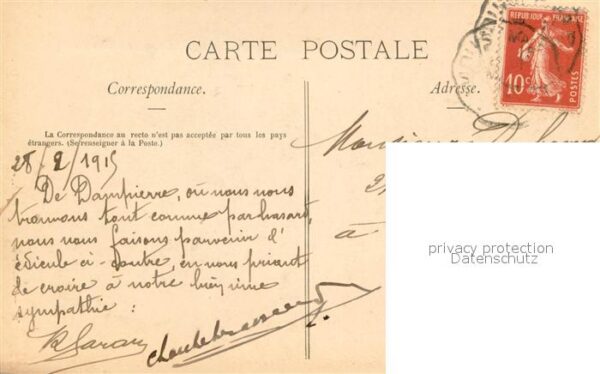 CARTE POSTALE
Correspondance.
Adresse.
RÉPUBLIQUE FRANÇAISE
10c
POSTES
La Correspondance au recto n'est pas acceptée par tous les pays
étrangers. (Se renseigner à la Poste.)
Monsieur
28/2/1915
De Dampierre, où nous nous
trouvons tout comme par hasard,
nous nous faisons parvenir l'
édicule ci-contre, en nous priant
de croire à notre bien
sympathie :
à
privacy protection
Datenschutz